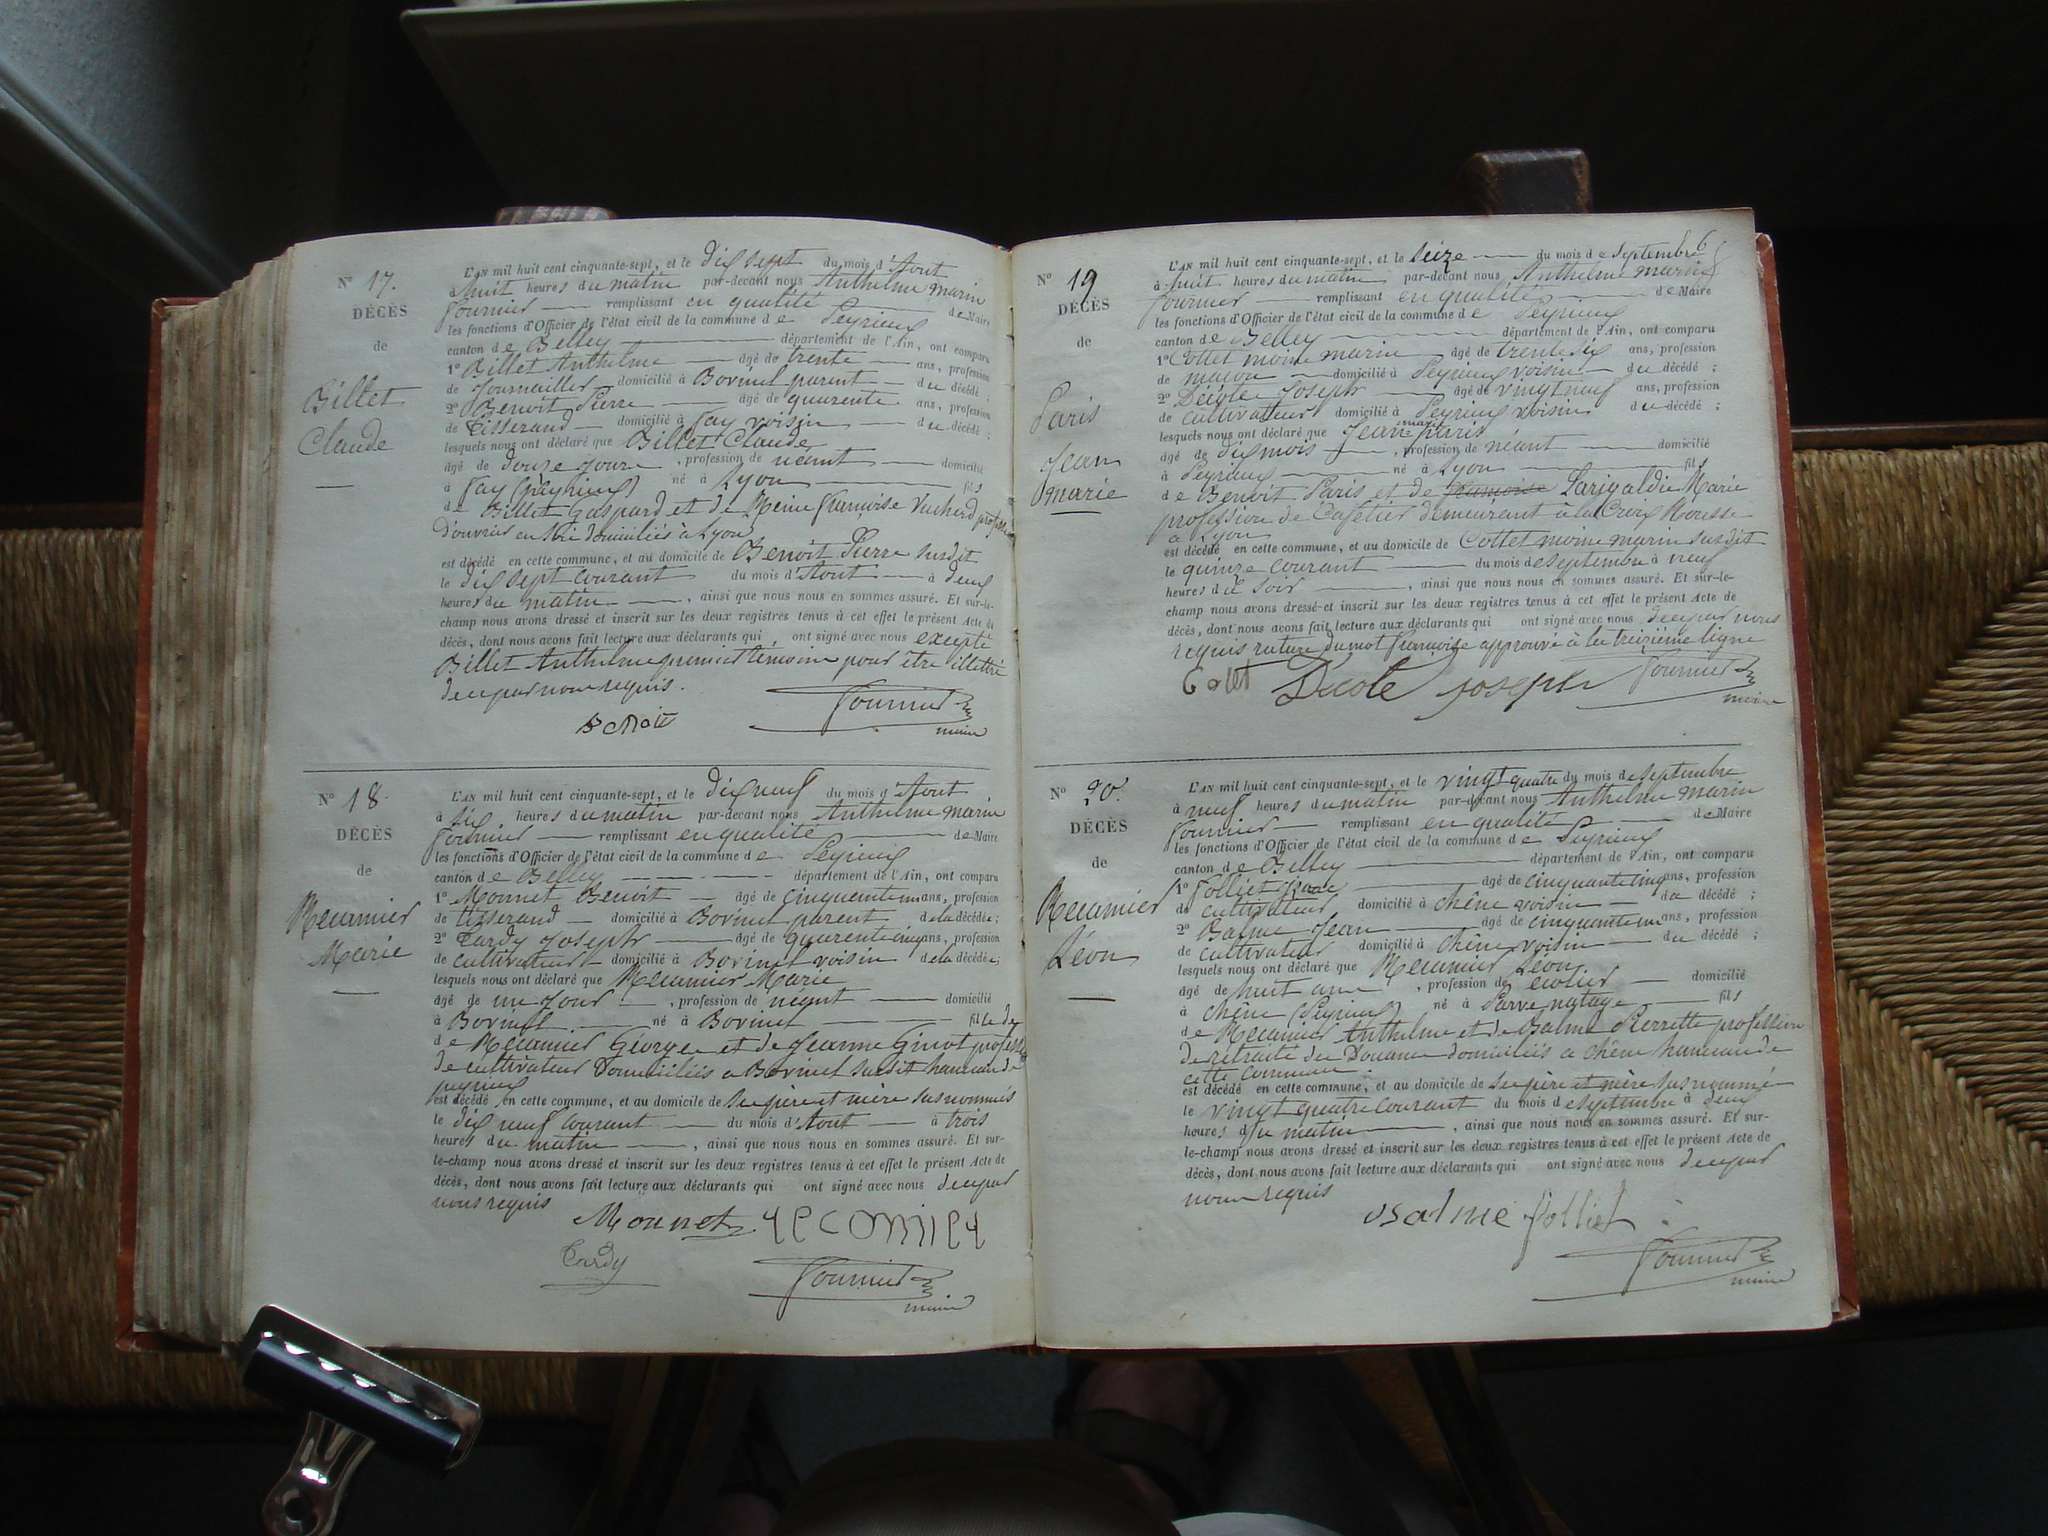 N° 17.
DÉCÈS
de
Billet
Claude
L'AN mil huit cent cinquante-sept, et le dix sept du mois d'Aout
à huit heures du matin par-devant nous Anthelme marin
fournier remplissant en qualité de Maire
les fonctions d'Officier de l'état civil de la commune de Peyrieux
canton de Belley département de l'Ain, ont comparu
1° Billet Anthelme âgé de trente ans, profession
de Journailler domicilié à Borinet parent du décédé ;
2° Benoit Pierre âgé de quarente ans, profession
de Tisserand domicilié à Fay voisin du décédé ;
lesquels nous ont déclaré que Billet Claude
âgé de douze Jours, profession de néant domicilié
à Fay (peyrieux) né à Lyon fils
de Billet Gaspard et de Reine francoise Vucherd profession
D'ouvrier en Soie domiciliés à Lyon
est décédé en cette commune, et au domicile de Benoit Pierre susdit
le dix sept courant du mois d'Aout à deux
heures du matin, ainsi que nous nous en sommes assuré. Et sur-le-
champ nous avons dressé et inscrit sur les deux registres tenus à cet effet le présent Acte de
décès, dont nous avons fait lecture aux déclarants qui, ont signé avec nous excepté
Billet Anthelme premier témoin pour être illettré
de ce par nous requis.
Benoit
fournier
maire
N° 18.
DÉCÈS
de
Récamier
Marie
L'AN mil huit cent cinquante-sept, et le dix neuf du mois d'Aout
à six heures du matin par-devant nous Anthelme marin
fournier remplissant en qualité de Maire
les fonctions d'Officier de l'état civil de la commune de Peyrieux
canton de Belley département de l'Ain, ont comparu
1° Monnet Benoit âgé de cinquante un ans, profession
de tisserand domicilié à Borinet parent de la décédée ;
2° Tardy Joseph âgé de quarente cinq ans, profession
de cultivateur domicilié à Borinet voisin de la décédée ;
lesquels nous ont déclaré que Récamier Marie
âgé de un Jour, profession de néant domicilié
à Borinet né à Borinet fille de
de Récamier George et de Jeanne Ginot profession
de cultivateur Domiciliés a Borinet susdit hameau de
peyrieux
est décédé en cette commune, et au domicile de ses père et mère susnommés
le dix neuf courant du mois d'Aout à trois
heures du matin, ainsi que nous nous en sommes assuré. Et sur-
le-champ nous avons dressé et inscrit sur les deux registres tenus à cet effet le présent Acte de
décès, dont nous avons fait lecture aux déclarants qui ont signé avec nous de ce par
nous requis
Monnet
Tardy
fournier
maire
6
N° 19
DÉCÈS
de
Paris
Jean
marie
L'AN mil huit cent cinquante-sept, et le seize du mois de septembre
à huit heures du matin par-devant nous Anthelme marin
fournier remplissant en qualité de Maire
les fonctions d'Officier de l'état civil de la commune de Peyrieux
canton de Belley département de l'Ain, ont comparu
1° Collet moine marin âgé de trente six ans, profession
de macon domicilié à Peyrieux voisin du décédé ;
2° Décote Joseph âgé de vingt neuf ans, profession
de cultivateur domicilié à Peyrieux voisin du décédé ;
lesquels nous ont déclaré que Jean marie paris
âgé de dix mois, profession de néant domicilié
à Peyrieux né à Lyon fils
de Benoit Paris et de francoise Larigaldie Marie
profession de Cafetier demeurant à la Croix Rousse
à Lyon
est décédé en cette commune, et au domicile de Collet moine marin susdit
le quinze courant du mois de septembre à neuf
heures du soir, ainsi que nous nous en sommes assuré. Et sur-le-
champ nous avons dressé et inscrit sur les deux registres tenus à cet effet le présent Acte de
décès, dont nous avons fait lecture aux déclarants qui ont signé avec nous de ce par nous
requis rature du mot francoise approuvé à la treizième ligne
Collet Décote joseph fournier
maire
N° 20.
DÉCÈS
de
Récamier
Léon
L'AN mil huit cent cinquante-sept, et le vingt quatre du mois de septembre
à neuf heures du matin par-devant nous Anthelme marin
fournier remplissant en qualité de Maire
les fonctions d'Officier de l'état civil de la commune de Peyrieux
canton de Belley département de l'Ain, ont comparu
1° Folliet âgé de cinquante cinq ans, profession
de cultivateur domicilié à Chêne voisin du décédé ;
2° Balme Jean âgé de cinquante un ans, profession
de cultivateur domicilié à Chêne voisin du décédé ;
lesquels nous ont déclaré que Récamier Léon
âgé de huit ans, profession de écolier domicilié
à Chêne (Peyrieux) né à fils
de Récamier Anthelme et de Balme Pierrette profession
de retraité de Douane domiciliés a Chêne hameau de
cette commune.
est décédé en cette commune, et au domicile de ses père et mère susnommé
le vingt quatre courant du mois de septembre à deux
heures du matin, ainsi que nous nous en sommes assuré. Et sur-
le-champ nous avons dressé et inscrit sur les deux registres tenus à cet effet le présent Acte de
décès, dont nous avons fait lecture aux déclarants qui ont signé avec nous de ce par
nous requis
Balme folliet
fournier
maire